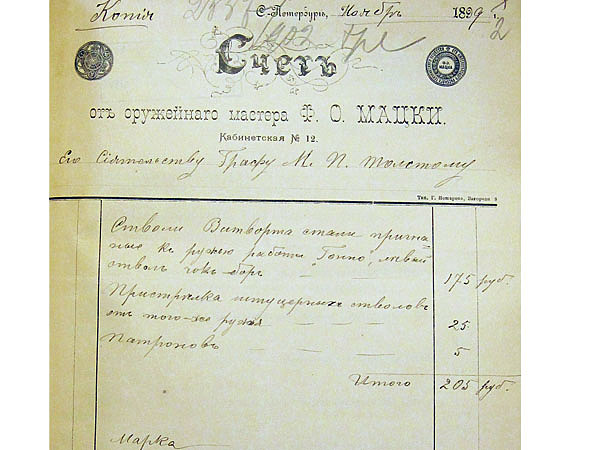 Копія
С.-Петербургъ, Ноябрь 1899 г.
Счетъ
отъ оружейнаго мастера Ф. О. МАЦКИ.
Кабинетская № 12.
Его Сіятельству Графу М. П. Толстому
Тип. Г. Пожарова, Загородн 8
Стволы Витворта стали пригна-
ные къ ружью работы Гонно, лѣвый
стволъ чокъ-боръ — 175 руб.
Пристрѣлка штуцерныхъ стволовъ
отъ того-же ружья — — — 25
Патроновъ — — — 5
Итого 205 руб.
Марка